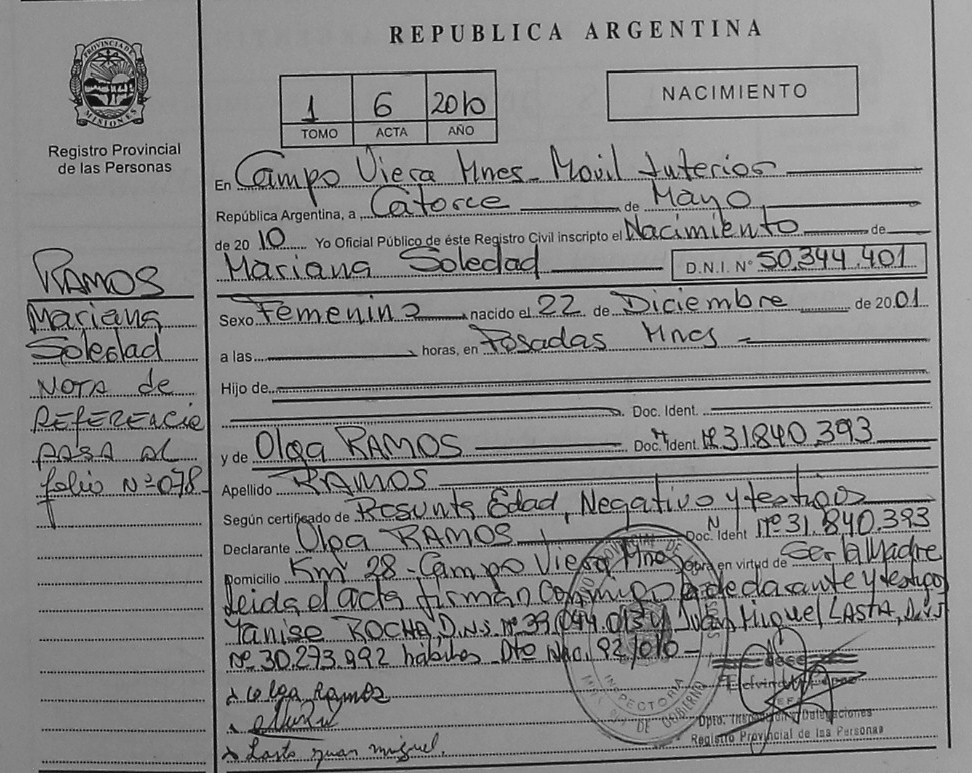 REPUBLICA ARGENTINA
PROVINCIA DE MISIONES
Registro Provincial
de las Personas
1 6 2010
TOMO ACTA AÑO
NACIMIENTO
En Campo Viera Mnes- Movil Interior
República Argentina, a Catorce de Mayo
de 2010 Yo Oficial Público de éste Registro Civil inscripto el Nacimiento de
Mariana Soledad D.N.I. N° 50.344.401
Sexo Femenino nacido el 22 de Diciembre de 2001
a las horas, en Posadas Mnes
Hijo de
Doc. Ident.
y de Olga RAMOS Doc. Ident. Nº 31.840.393
Apellido RAMOS
Según certificado de Presunta Edad, Negativo y testigos
Declarante Olga RAMOS Doc. Ident Nº 31.840.393
Domicilio Km 28 - Campo Viera Mnes Obra en virtud de Ser la Madre
leida el acta firman conmigo la declarante y testigos
RAMOS
Mariana
Soledad
NOTA de
REFERENCIA
PASA AL
folio Nº 078
Tanise ROCHA, D.N.I. Nº 39.044.013 y Juan Miguel LASTA, D.N.I
Nº 30.273.992 habiles Dto Nac. 92/010-
Olga Ramos
Lasta Juan miguel.
INSPECTORIA
DE GOBIERNO
Registro Provincial de las Personas